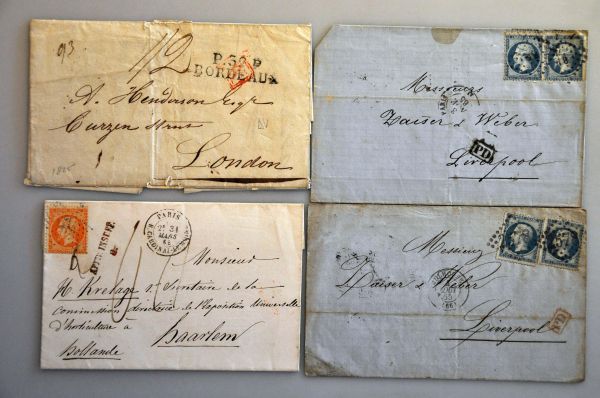 93
1/2
P.32.P
BORDEAUX
A. Henderson Esqr
Curzen Street
London
1825
Messieurs
Zaiser & Weber
PD
Liverpool
PARIS
31
MARS
AFFR. INSUFF.
2
Monsieur
H. Krelage, Secrétaire de la
Commission directrice de l'Exposition Universelle
d'horticulture à
Haarlem
Hollande
Messieurs
Zaiser & Weber
Liverpool
PD